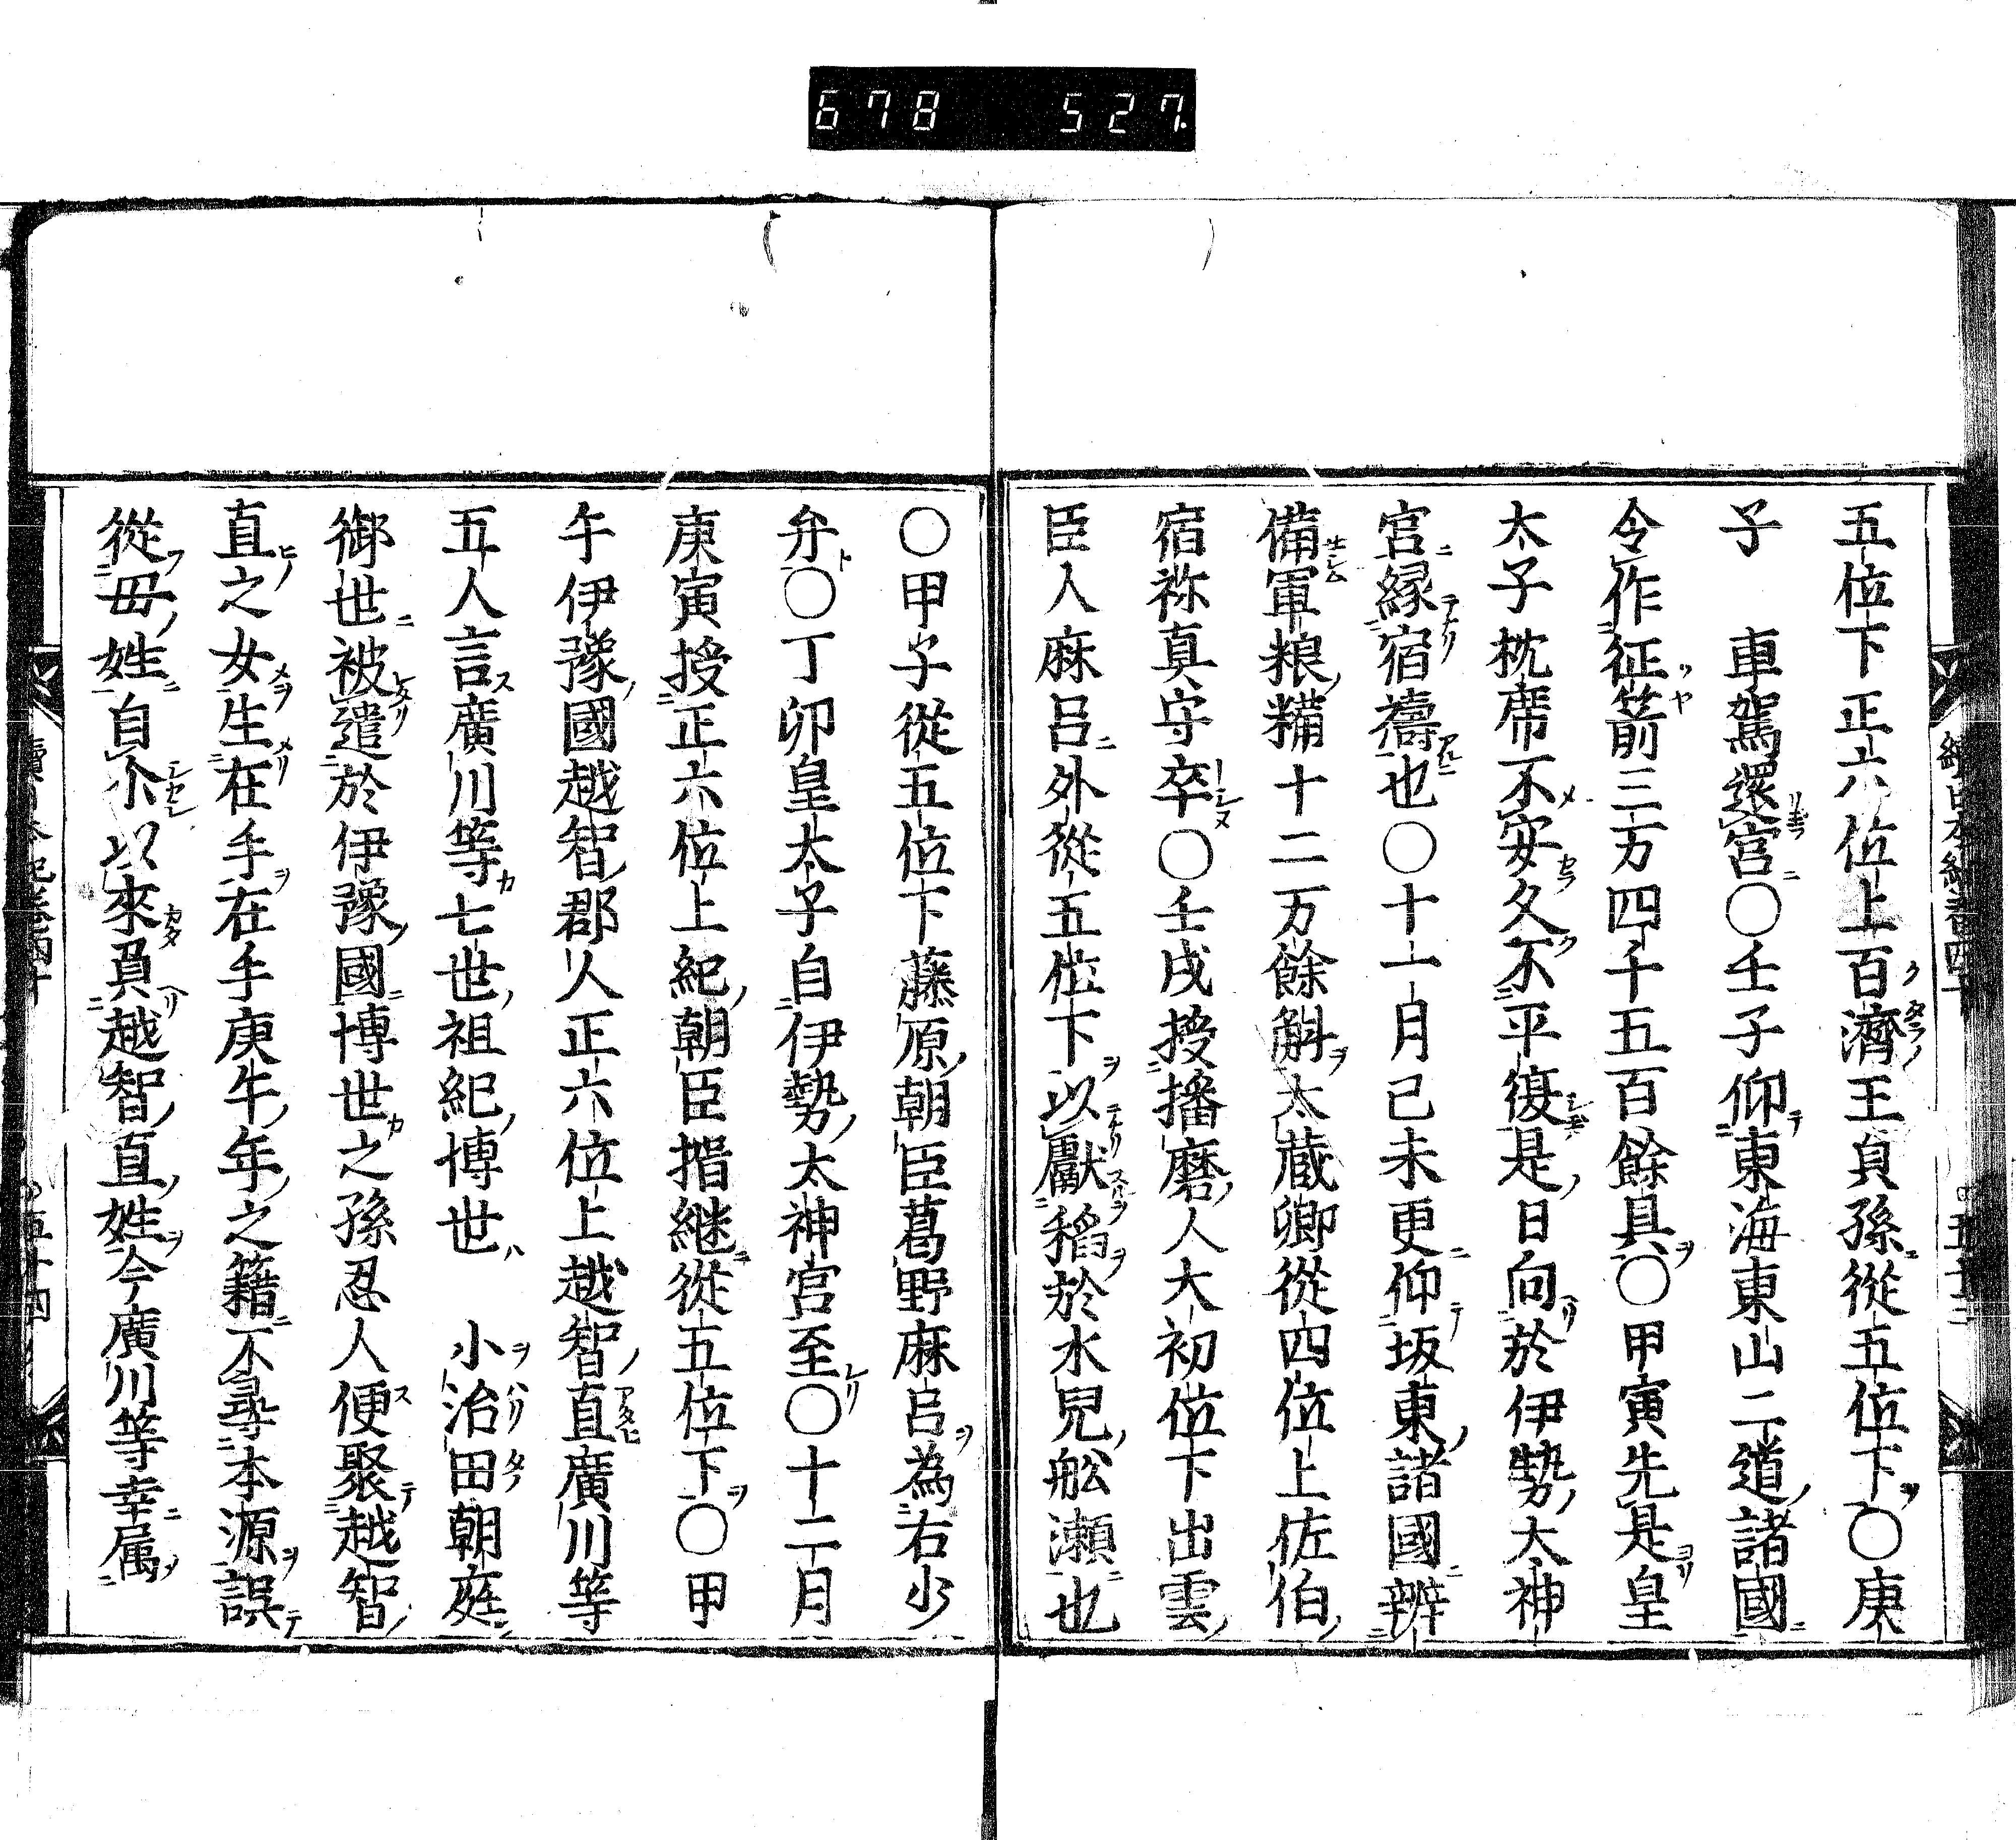 678 527
五位下正六位上百濟王貞孫從五位下○庚
子　車駕還宮○壬子仰東海東山二道諸國
令作征箭三万四千五百餘具○甲寅先是皇
太子枕席不安久不平復是日向於伊勢大神
宮縁宿禱也○十一月己未更仰坂東諸國辨
備軍粮糒十二万餘斛太蔵卿從四位上佐伯
宿祢真守卒○壬戌授播磨人大初位下出雲
臣人麻呂外從五位下以獻稻於水兒舩瀬也
○甲子從五位下藤原朝臣葛野麻呂為右少
弁○丁卯皇太子自伊勢太神宮至○十二月
庚寅授正六位上紀朝臣楷継從五位下○甲
午伊豫國越智郡人正六位上越智直廣川等
五人言廣川等七世祖紀博世　小治田朝庭
御世被遣於伊豫國博世之孫忍人便聚越智
直之女生在手在手庚午年之籍不尋本源誤
從母姓自尒以來負越智直姓今廣川等幸属